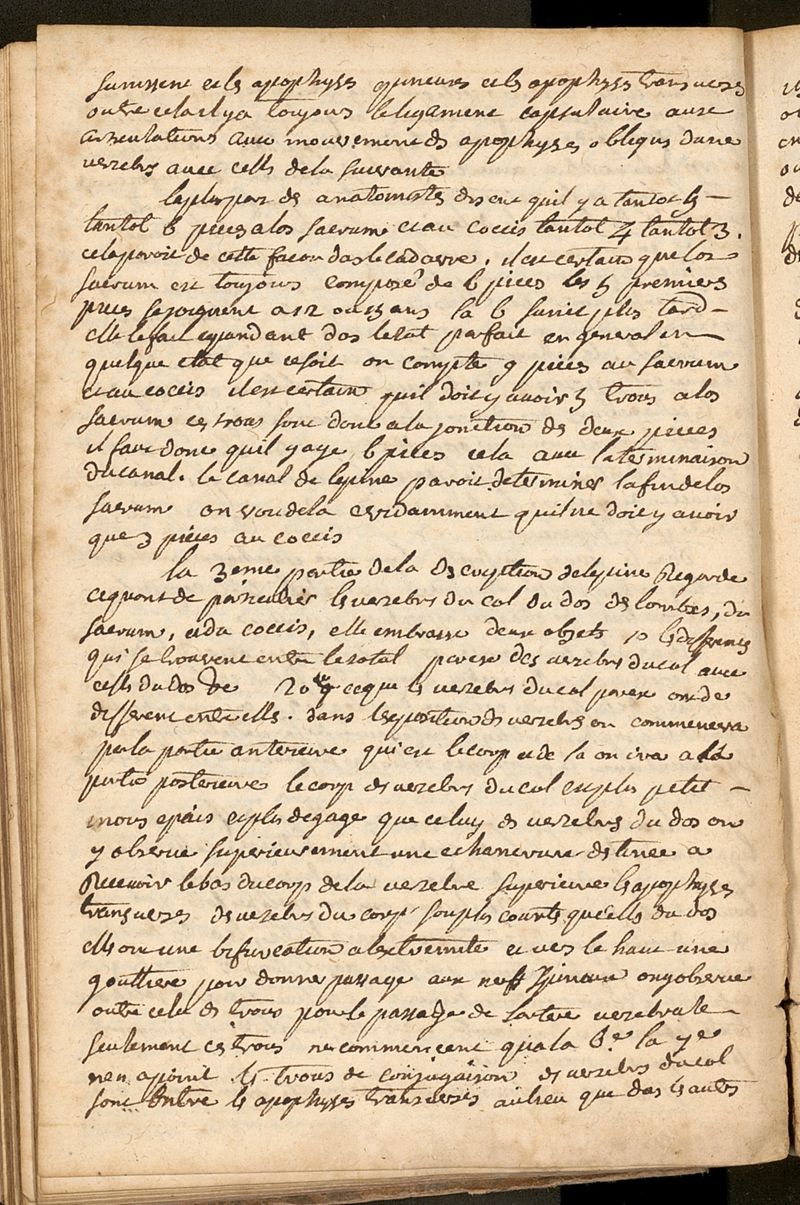 sunissent et les apophyses epineuses et les apophyses transverses
outre cela il y a toujours le ligament capsulaire aux
articulations aux mouvement des apophyses obliques dune
vertebre avec celles de la suivante
la plus part des anatomistes disent quil y a tantot 5
tantot 6 pieces a los sacrum et au coccis tantot 4 tantot 3.
cela paroit de cette facon das le cadavre, il est certain que los
sacrum est toujours composé de 6 pieces les 5 premiers
pieces se joignent a 12 ou 15 ans la 6 sunit plus tard
elle le fait cependant das letat parfait en general en
quelque etat que ce soit on compte 9 pieces au sacrum
et au coccis il est certain quil doit y avoir 5 trous a los
sacrum ces trous sont donc a la jonction de deux pieces
il faut donc quil y aye 6 pieces cela avec la terminaison
du canal. le canal de lepine paroit determiner la fin de los
sacrum on voit de la evidamment quil ne doit y avoir
que 3 pieces au coccis
la 3eme partie de la description de lepine Regarde
ce quont de particulier les vertebres du col du dos des lombes, du
sacrum, et du coccis, elle embrasse deux objets 1o les differences
qui se trouvent entre le total des vertebres du col avec
celles du dos &c 2o ce que les vertebres du col ont de
different entre elles. dans lexposition des vertebres on commencera
par la partie anterieure qui est le corp et de la on ira a la
partie posterieure le corp des vertebres du col est plus petit
moins epais et plus degagé que celuy des vertebres du dos on
y observe superieurement une echancrure destinee a
Recevoir le bas du corp de la vertebre superieure les apophyses
transverses des vertebres du corp sont plus courts que celles du dos
elles ont une bifurcation a lextremité et vers le haut une
gouttiere pour donner passage aux nerfs Spinaux on y observe
outre cela des trous pour le passage de lartere vertebrale
seulement ces trous ne commencent qua la 6e la 7e
nen a point les trous de conjugaison des vertebres du col
sont Entre les apophyses transverses au lieu que das les autres